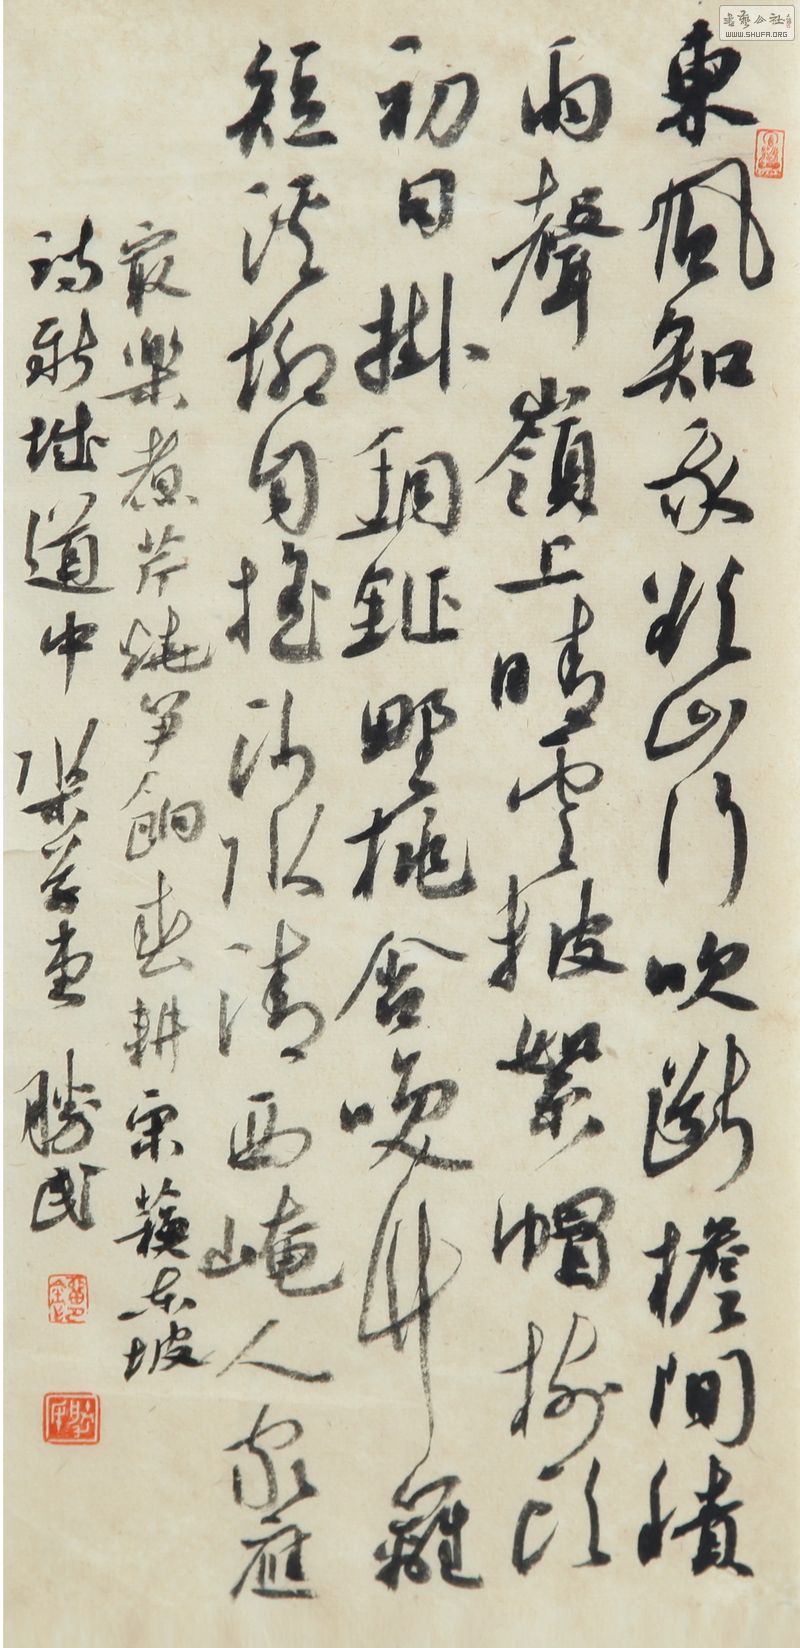 書藝公社
WWW.SHUFA.ORG
東風知我欲山行吹斷檐間積
雨聲嶺上晴雲披絮帽樹頭
初日掛銅鉦野桃含咲竹籬
短溪柳自搖沙水清西崦人家應
最樂煮芹燒笋餉春耕宋蘇東坡
詩新城道中 勝民